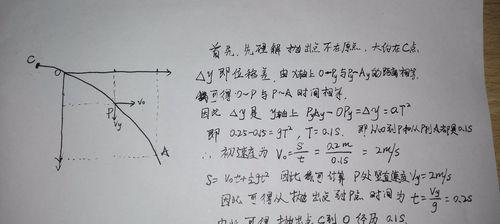 C
O
P
V₀
Vy
A
首先, 先理解 抛出点 不在原点, 大约在C点
△y 即位移差, 由 X轴上 O→P与 P→A 的距离相等
可得 O~P 与 P~A 时间相等.
因此 △y 是 y轴上 PyAy - OPy = △y = aT²
即 0.25-0.15 = gT², T = 0.1S. 即从O到P和从P到A都是0.1S
∴ 初速度为 V₀ = S/t = 0.2m/0.1S = 2m/s
S = V₀t+½gt² 因此 可计算 P处竖直速度 Vy = 2m/s
因此 可得从 抛出点 到P点 时间为 t = Vy/g = 0.2S
可得 抛出点 C到O 经历 0.1S.